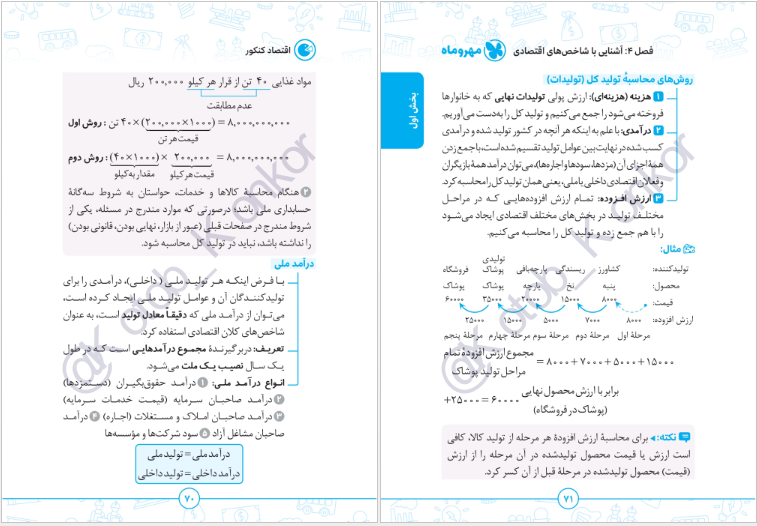 اقتصاد کنکور
مواد غذایی ۴۰ تن از قرار هر کیلو ۲۰۰,۰۰۰ ریال
عدم مطابقت
روش اول : ۴۰ تن × (۲۰۰,۰۰۰×۱۰۰۰) = ۸,۰۰۰,۰۰۰,۰۰۰
قیمت هر تن
روش دوم : (۴۰×۱۰۰۰) × ۲۰۰,۰۰۰ = ۸,۰۰۰,۰۰۰,۰۰۰
مقدار به کیلو قیمت هر کیلو
۲ هنگام محاسبهٔ کالاها و خدمات، حواستان به شروط سه‌گانهٔ
حسابداری ملی باشد؛ درصورتی که موارد مندرج در مسئله، یکی از
شروط مندرج در صفحات قبلی (عبور از بازار، نهایی بودن، قانونی بودن)
را نداشته باشد، نباید در تولید کل محاسبه شود.
درآمد ملی
بـا فـرض اینکـه هـر تولیـد ملـی ( داخلـی)، درآمـدی را برای
تولیدکننـدگان آن و عوامـل تولیـد ملـی ایجـاد کـرده اسـت،
می‌تـوان از درآمـد ملی که دقیقـاً معادل تولید اسـت، به عنوان
شاخص‌های کلان اقتصادی استفاده کرد.
تعریـف: دربرگیرنـدهٔ مجمـوع درآمدهایـی اسـت کـه در طول
یـک سـال نصیـب یـک ملـت می‌شـود.
انـواع درآمـد ملـی: ۱ درآمـد حقوق‌بگیـران (دسـتمزدها)
۲ درآمـد صاحبـان سـرمایه (قیمـت خدمـات سـرمایه)
۳ درآمـد صاحبـان امـلاک و مسـتغلات (اجـاره) ۴ درآمـد
صاحبان مشاغل آزاد ۵ سود شرکت‌ها و مؤسسه‌ها
درآمد ملی = تولید ملی
درآمد داخلی = تولید داخلی
۷۰
فصل ۴: آشنایی با شاخص‌های اقتصادی مهروماه
بخش اول
روش‌های محاسبهٔ تولید کل (تولیدات)
۱ هزینه (هزینه‌ای): ارزش پولی تولیدات نهایی که به خانوارها
فروخته می‌شود را جمع می‌کنیم و تولید کل را به‌دست می‌آوریم.
۲ درآمدی: با علم به اینکه هر آنچه در کشور تولید شده و درآمدی
کسب شده در نهایت بین عوامل تولید تقسیم شده است، با جمع زدن
همهٔ اجزای آن (مزدها، سودها و اجاره‌ها)، می‌توان درآمد همهٔ بازیگران
و فعالان اقتصادی داخلی یا ملی، یعنی همان تولید کل را محاسبه کرد.
۳ ارزش افـزوده: تمـام ارزش افزوده‌هایـی کـه در مراحـل
مختلـف تولیـد در بخش‌هـای مختلـف اقتصادی ایجاد می‌شـود
را با هم جمع زده و تولید کل را محاسبه می‌کنیم.
مثال:
تولیدکننده: کشاورز ریسندگی پارچه‌بافی تولیدی پوشاک فروشگاه
محصول: پنبه نخ پارچه پوشاک پوشاک
قیمت: ۸۰۰۰ ۱۵۰۰۰ ۲۰۰۰۰ ۳۵۰۰۰ ۶۰۰۰۰
ارزش افزوده: ۸۰۰۰ ۷۰۰۰ ۵۰۰۰ ۱۵۰۰۰ ۲۵۰۰۰
مرحلهٔ اول مرحلهٔ دوم مرحلهٔ سوم مرحلهٔ چهارم مرحلهٔ پنجم
مجموع ارزش افزودهٔ تمام
مراحل تولید پوشاک = ۸۰۰۰ + ۷۰۰۰ + ۵۰۰۰ + ۱۵۰۰۰
+۲۵۰۰۰ = ۶۰۰۰۰ برابر با ارزش محصول نهایی
(پوشاک در فروشگاه)
نکته: برای محاسبهٔ ارزش افزودهٔ هر مرحله از تولید کالا، کافی
است ارزش یا قیمت محصول تولیدشده در آن مرحله را از ارزش
(قیمت) محصول تولیدشده در مرحلهٔ قبل از آن کسر کرد.
۷۱
@Kotob_Konkor
@Kotob_Konkor